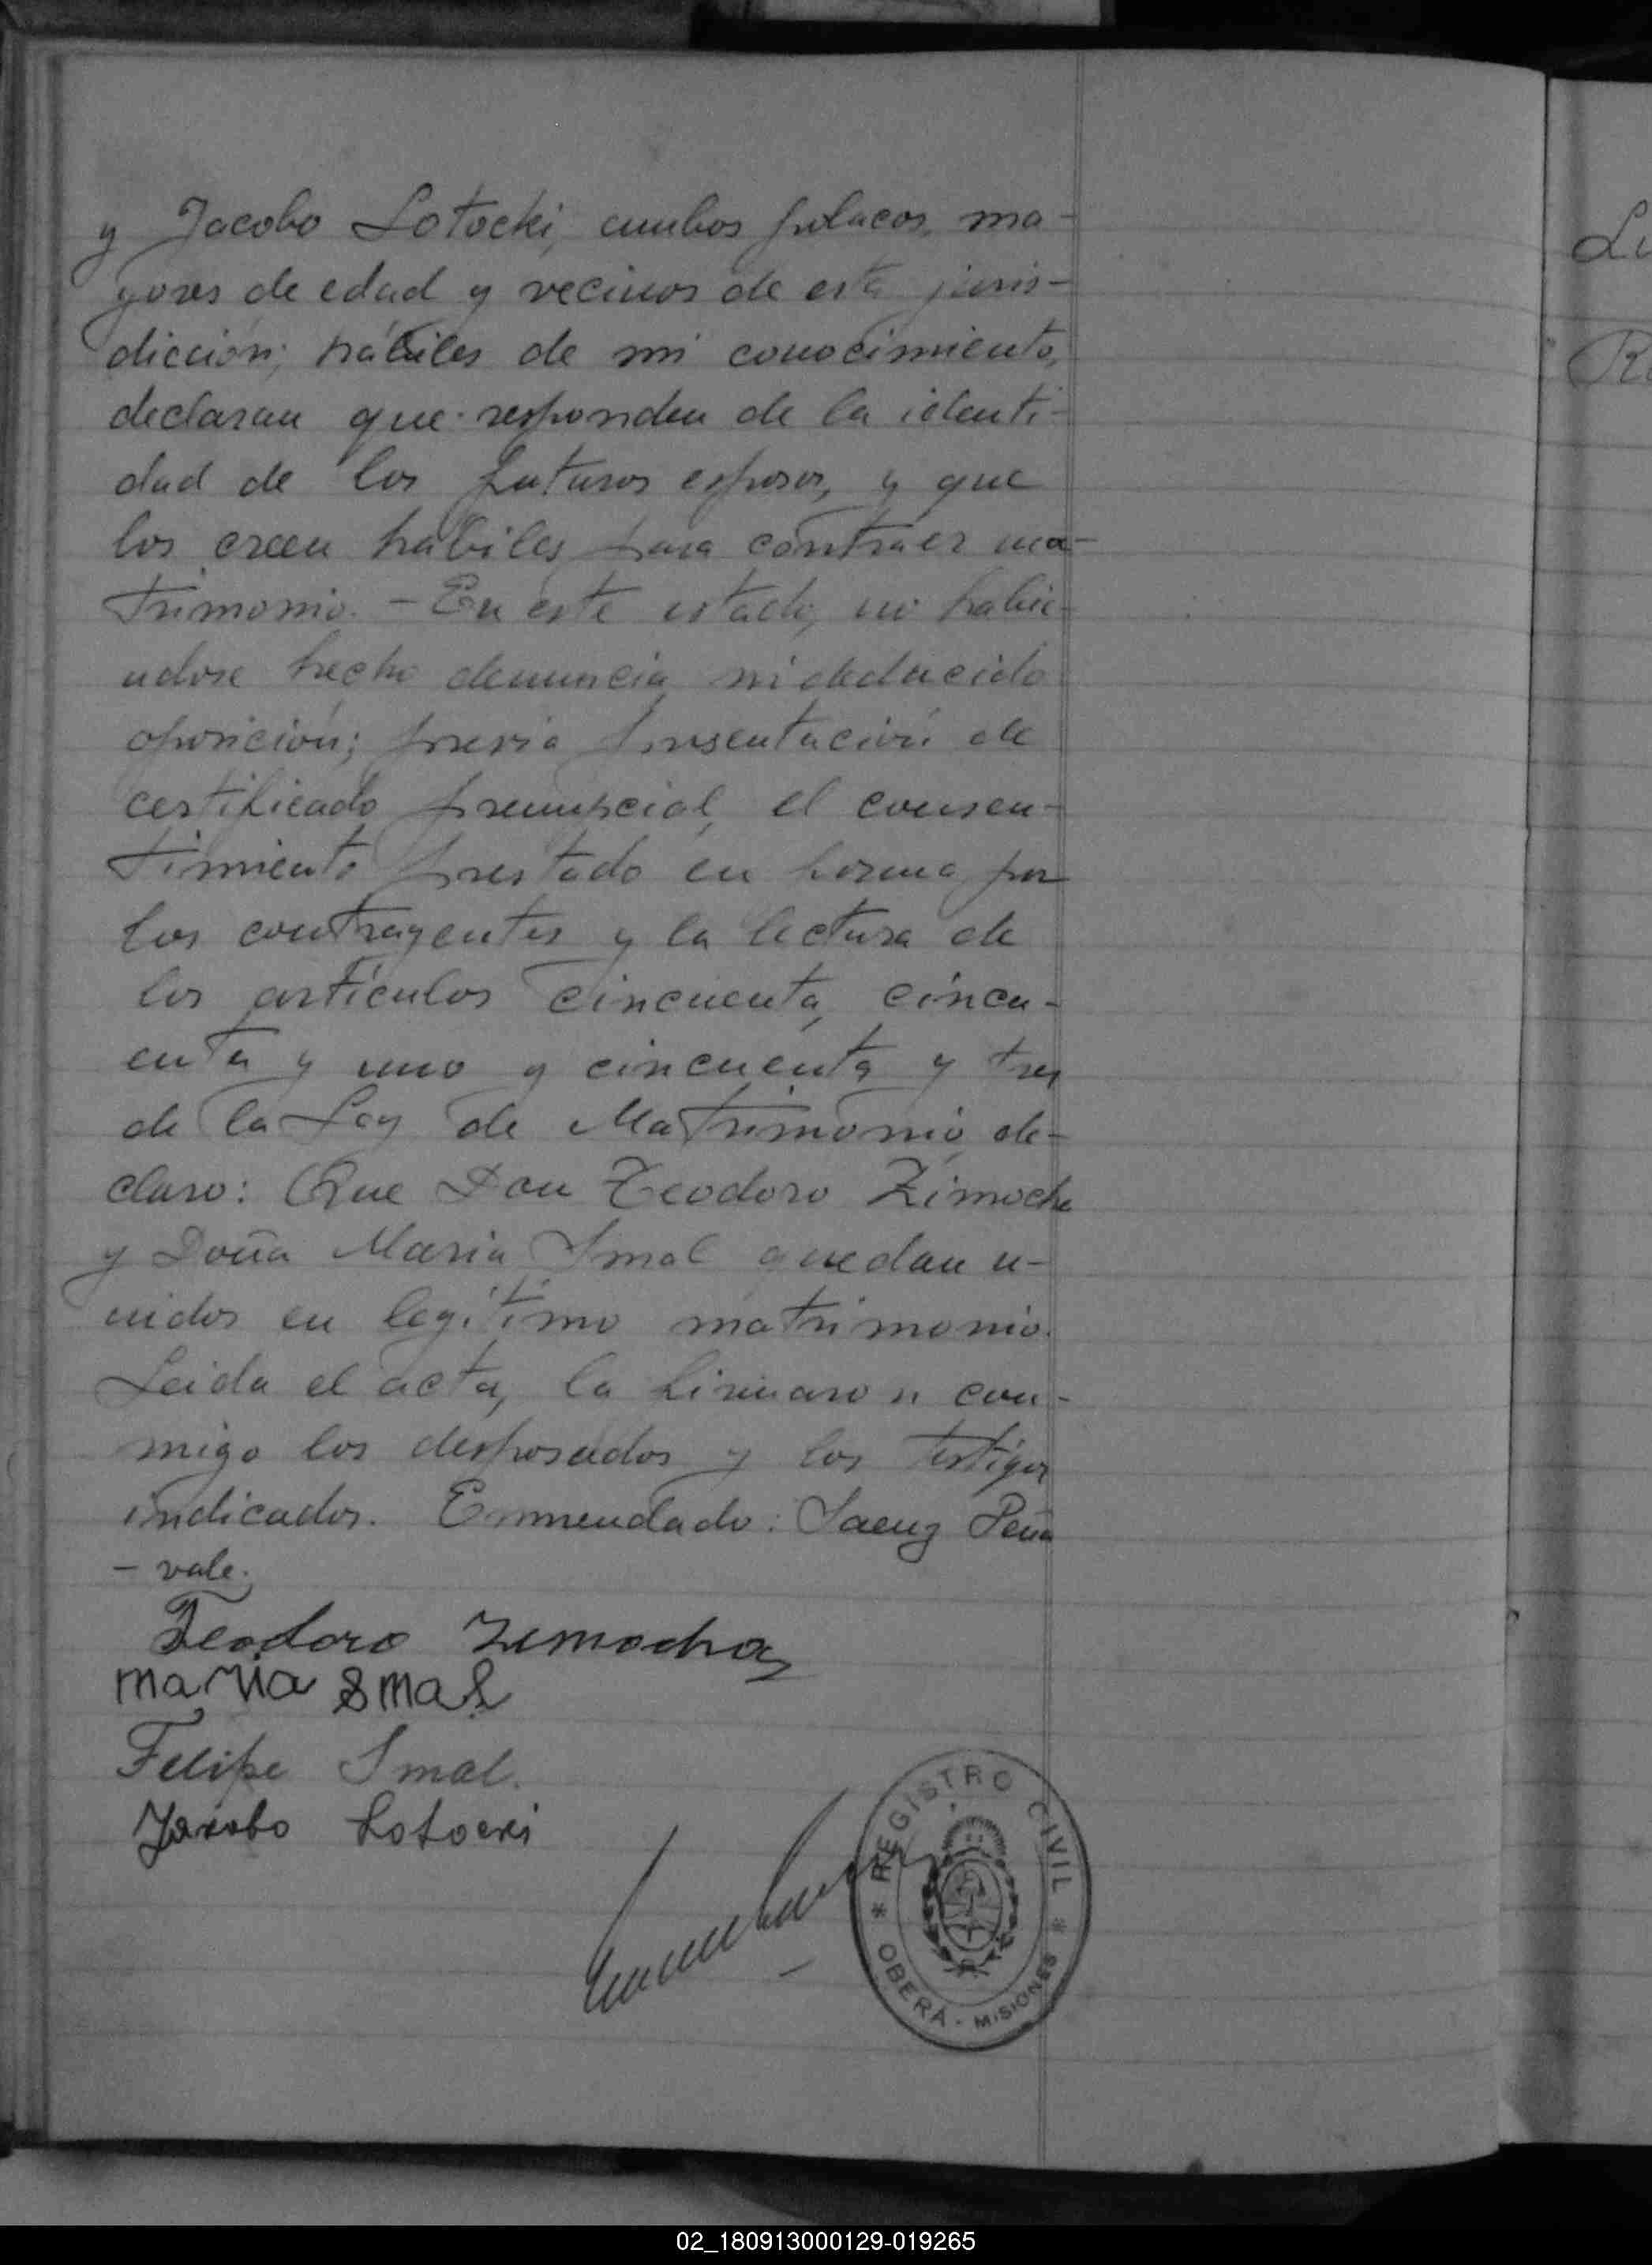 y Jacobo Lotocki, ambos polacos, ma-
yores de edad y vecinos de esta juris-
dicción; hábiles de mi conocimiento,
declaran que responden de la identi-
dad de los futuros esposos, y que
los creen hábiles para contraer ma-
trimonio. - En este estado, no habie-
ndose hecho denuncia ni deducido
oposición; previa presentación de
certificado prenupcial, el consen-
timiento prestado en forma por
los contrayentes y la lectura de
los artículos cincuenta, cincu-
enta y uno y cincuenta y tres
de la Ley de Matrimonio, de-
claro: Que Don Teodoro Zimocha
y Doña Maria Smal quedan u-
nidos en legítimo matrimonio.
Leida el acta, la firmaron con-
migo los desposados y los testigos
indicados. Enmendado: Saenz Peña
- vale.
Teodoro Zemocha
maria smal
Felipe Smal.
Jacobo Lotocki
REGISTRO CIVIL
OBERÁ - MISIONES
Lu
Ro
02_180913000129-019265